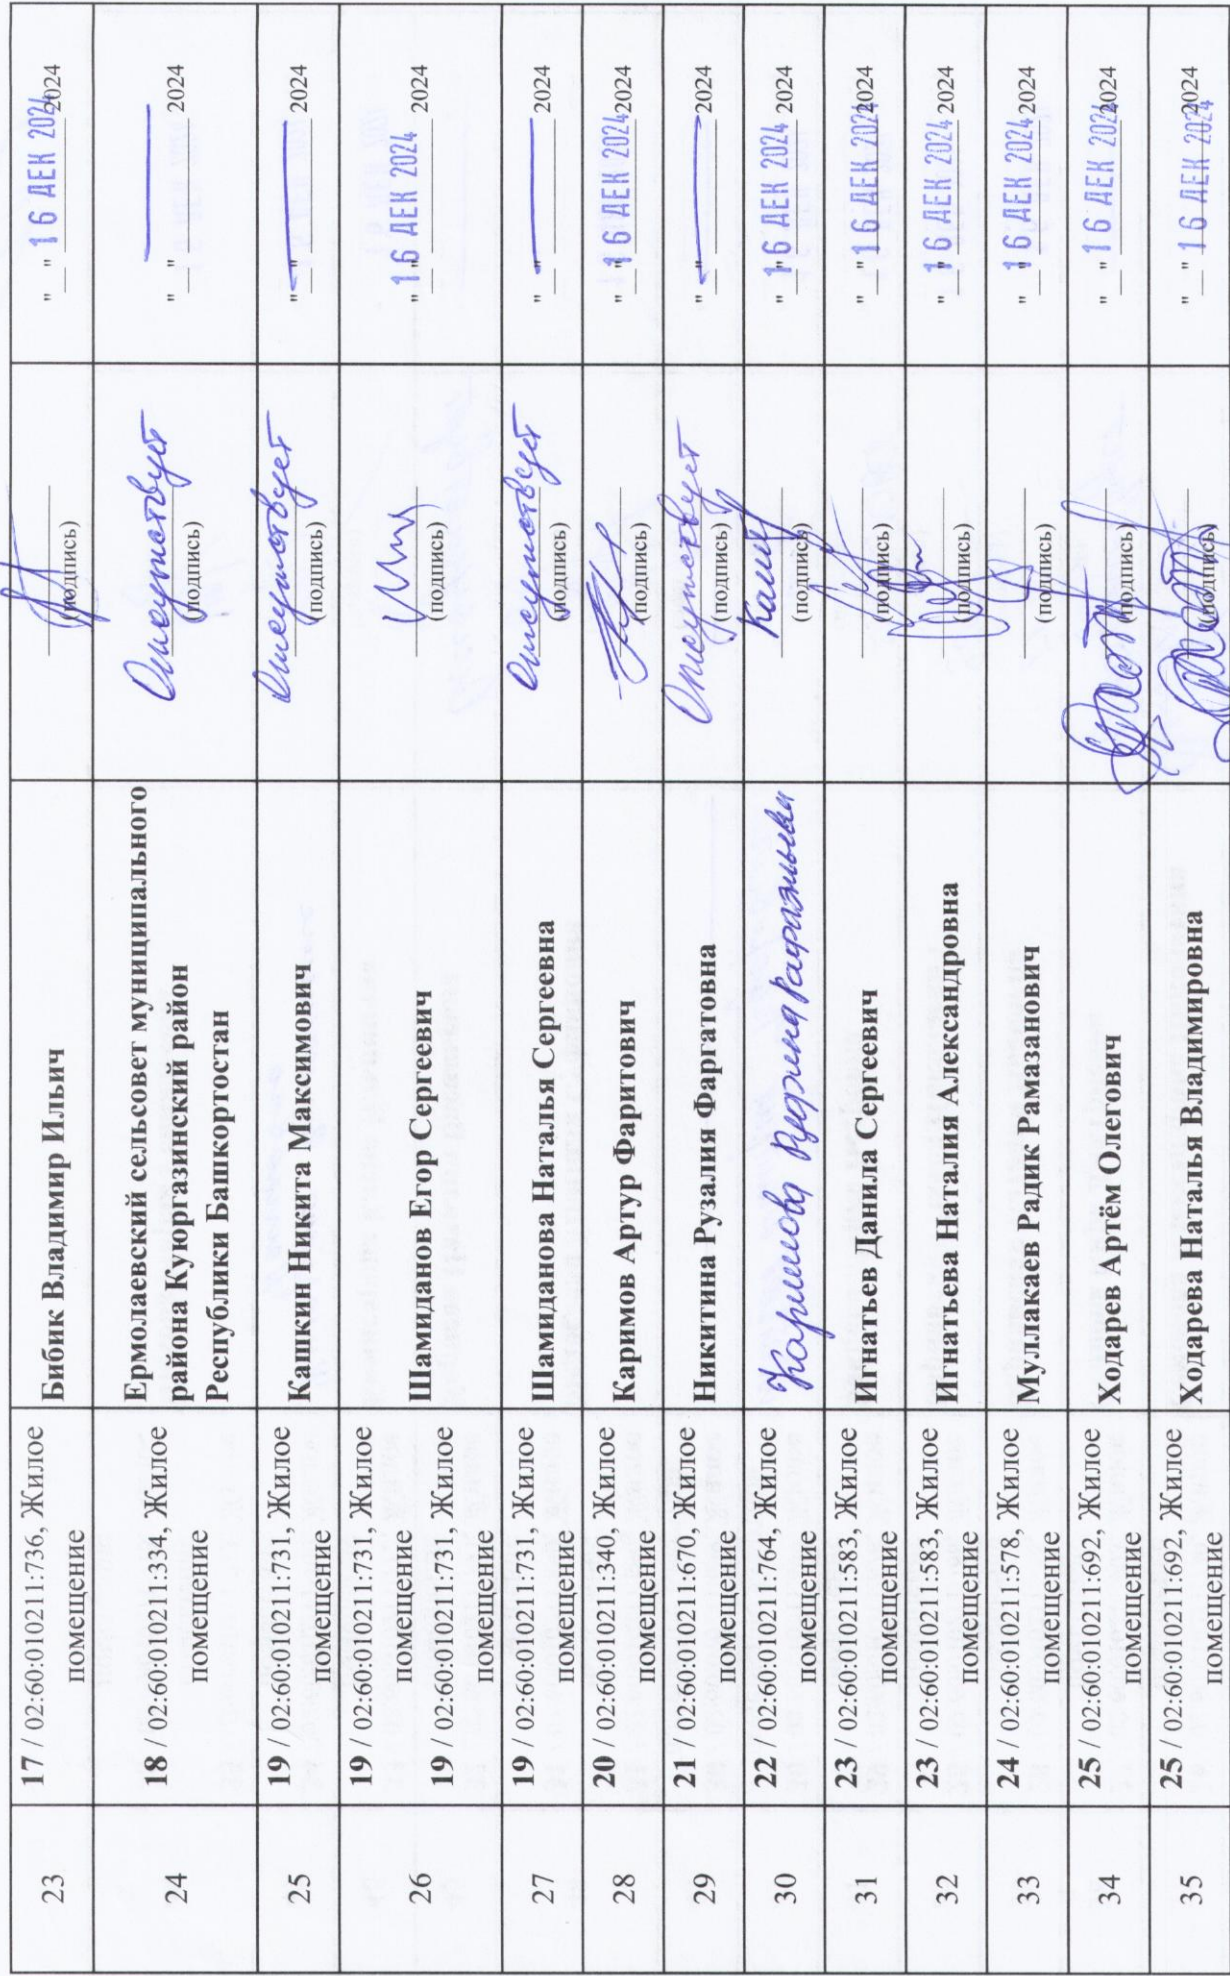 23
17 / 02:60:010211:736, Жилое
помещение
Бибик Владимир Ильич
(подпись)
"__" 16 ДЕК 2024 2024
24
18 / 02:60:010211:334, Жилое
помещение
Ермолаевский сельсовет муниципального
района Куюргазинский район
Республики Башкортостан
Отсутствует
(подпись)
"__" 2024
25
19 / 02:60:010211:731, Жилое
помещение
Кашкин Никита Максимович
Отсутствует
(подпись)
"__" 2024
26
19 / 02:60:010211:731, Жилое
помещение
19 / 02:60:010211:731, Жилое
помещение
Шамиданов Егор Сергеевич
(подпись)
"__" 16 ДЕК 2024 2024
27
19 / 02:60:010211:731, Жилое
помещение
Шамиданова Наталья Сергеевна
Отсутствует
(подпись)
"__" 2024
28
20 / 02:60:010211:340, Жилое
помещение
Каримов Артур Фаритович
(подпись)
"__" 16 ДЕК 2024 2024
29
21 / 02:60:010211:670, Жилое
помещение
Никитина Рузалия Фаргатовна
Отсутствует
(подпись)
"__" 2024
30
22 / 02:60:010211:764, Жилое
помещение
Каримова
(подпись)
"__" 16 ДЕК 2024 2024
31
23 / 02:60:010211:583, Жилое
помещение
Игнатьев Данила Сергеевич
(подпись)
"__" 16 ДЕК 2024 2024
32
23 / 02:60:010211:583, Жилое
помещение
Игнатьева Наталия Александровна
(подпись)
"__" 16 ДЕК 2024 2024
33
24 / 02:60:010211:578, Жилое
помещение
Муллакаев Радик Рамазанович
(подпись)
"__" 16 ДЕК 2024 2024
34
25 / 02:60:010211:692, Жилое
помещение
Ходарев Артём Олегович
(подпись)
"__" 16 ДЕК 2024 2024
35
25 / 02:60:010211:692, Жилое
помещение
Ходарева Наталья Владимировна
(подпись)
"__" 16 ДЕК 2024 2024